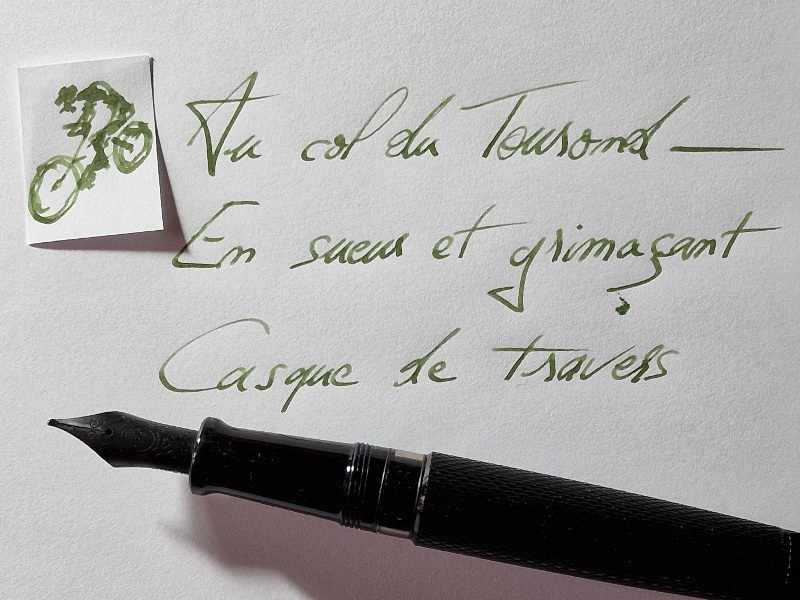 Au col du Tourond —
En sueur et grimaçant
Casque de travers